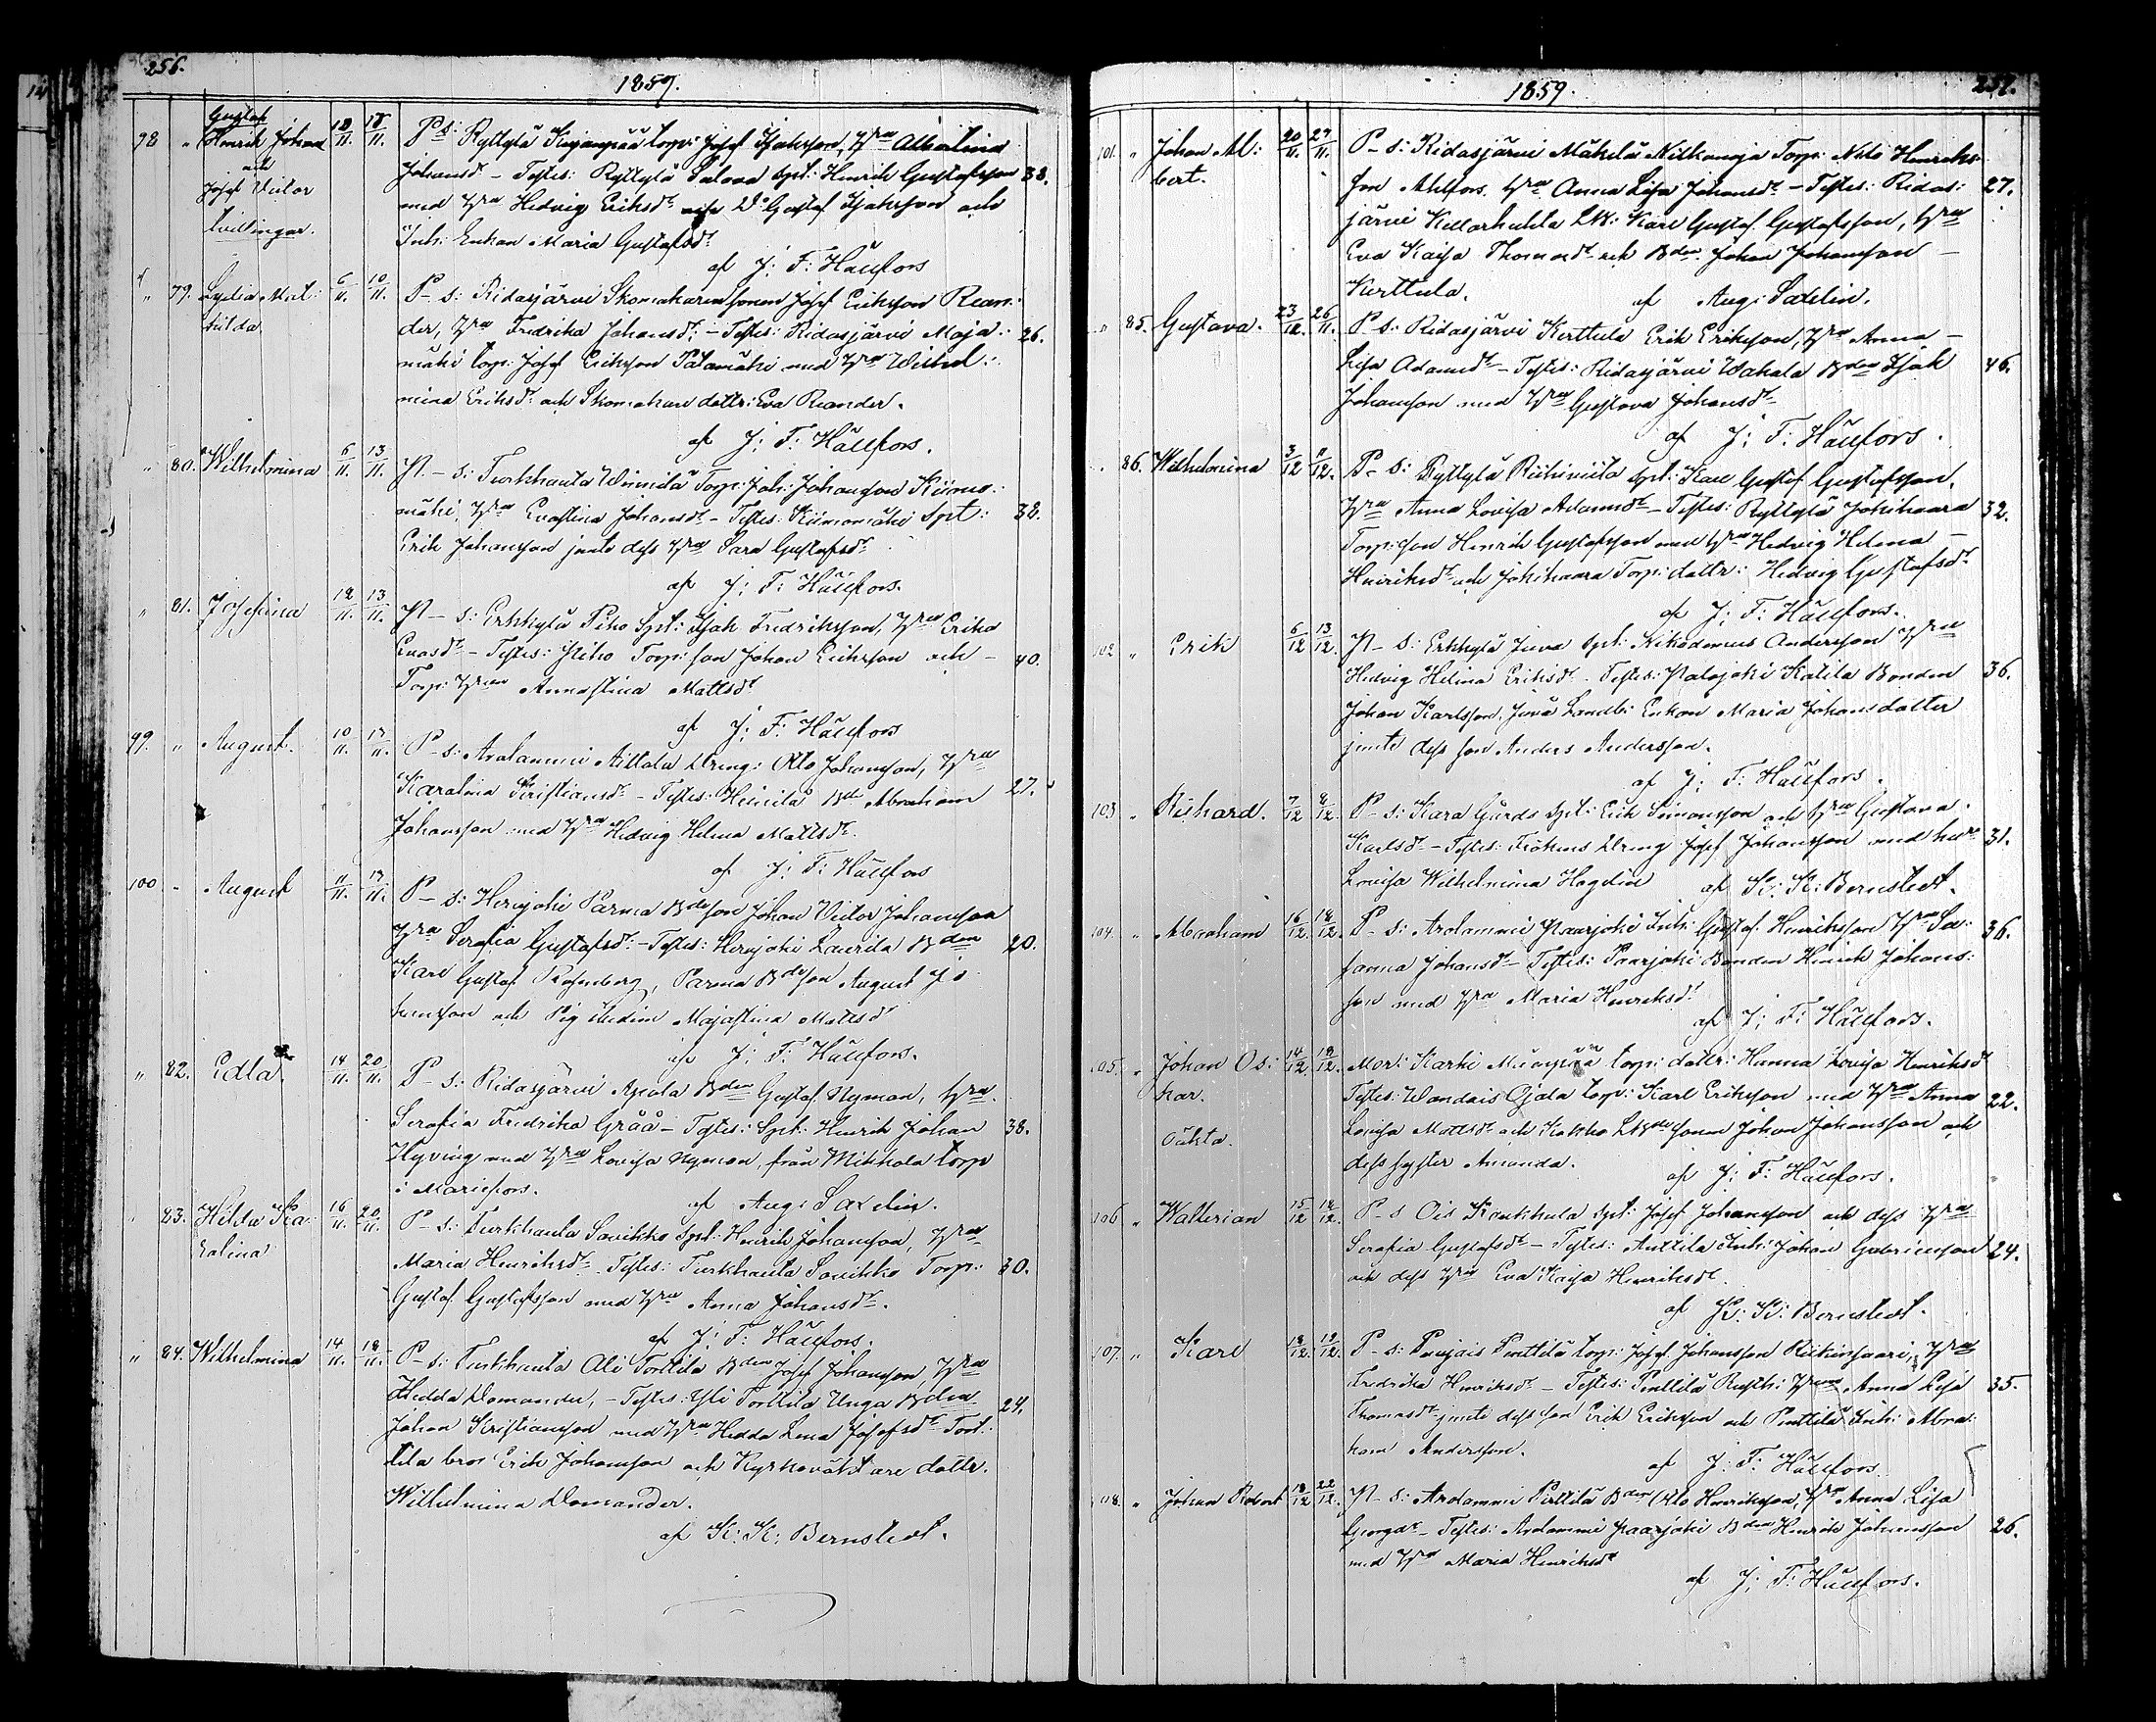 256.
1859.
Gustaf
98 " Henrik Johan 18/11. 18/11. P-s: Ryttylä Torp: Josef Isaksson, Hru Albertina
och
Josef Victor
tvillingar.
Johansdr - Testes: Ryttylä Salava Spt: Henrik Gustafsson 38.
med Hru Hedvig Eriksdr Gustaf Isaksson och
Inh: Enkan Maria Gustafsdr
af J: F: Hällfors
" 79. Lydia Mat: 6/11. 10/11. P-s: Ridasjärvi Skomakaren sonen Josef Eriksson Rean:
hilda.
der, Hru Fredrika Johansdr - Testes: Ridasjärvi Moja: 26.
mäki torp: Josef Eriksson Palamäki med Hru Wilhel:
mina Eriksdr och Skomakare dottr: Eva Reander.
af J: F: Hällfors.
" 80. Wilhelmina 6/11. 13/11. P-s: Turkhauta Torp: Joh: Johansson Kiimo:
mäki, Hru Evastina Johansdr - Testes: Kiimomäki Spt: 38.
Erik Johansson jemte dess Hru Sara Gustafsdr
af J: F: Hällfors.
" 81. Josefina 12/11. 13/11. P-s: Erkkylä Piho Spt: Isak Fredriksson, Hru Erika
Evasdr - Testes: Piho Torp: son Johan Eriksson och - 40.
Torp: Hrun Annastina Mattsdr
af J: F: Hällfors
99. " August. 10/11. 17/11. P-s: Arolammi Aittola Dreng: Otto Johansson, Hru
Karolina Kristiansdr - Testes: Heinilä Bd Abraham 27.
Johansson med Hru Hedvig Helena Mattsdr.
af J: F: Hällfors
100 " August 11/11. 17/11. P-s: Herajoki Parma Bdeson Johan Victor Johansson
Hru Serafia Gustafsdr - Testes: Herajoki Laurila Bden 20.
Karl Gustaf Rosenberg, Parma Bdeson August Jo
hansson och Pig Majastina Mattsdr
af J: F: Hällfors.
" 82. Edla. 14/11. 20/11. P-s: Ridasjärvi Bden Gustaf Nyman, Hru
Serafia Fredrika Gråå - Testes: Spt: Henrik Johan 38.
Hyving med Hru Lovisa Nyman, från Mikkola torp
i Mariefors.
af Aug: Saxelin.
" 83. Hilda Ka: 16/11. 20/11. P-s: Turkhauta Sovikko Spt: Henrik Johansson, Hru
rolina
Maria Henriksdr - Testes: Turkhauta Sovikko Torp: 30.
Gustaf Gustafsson med Hru Anna Johansdr.
af J: F: Hällfors.
" 84. Wilhelmina 14/11. 18/11. P-s: Turkhauta Ali Torttila Bden Josef Johansson, Hru
Hedda Domander, - Testes: Yli Torttila Unga Bden 24.
Johan Kristiansson med Hru Hedda Lena Josefsdr Tort:
tila bror Erik Johansson och Kyrkoväktare dottr.
Wilhelmina Domander.
af K: K: Bernstedt.
1859. 257.
101. " Johan Al: 20/11. 27/11. P-s: Ridasjärvi Mäkelä Torp: Henriks:
bert.
son Ahlfors, Hru Anna Lisa Johansdr - Testes: Ridas: 27.
järvi Karl Gustaf Gustafsson, Hru
Eva Kaisa Thomasdr och Bden Johan Johansson -
Kerttula.
af Aug: Saxelin.
" 85. Gustava. 23/12. 26/11. P-s: Ridasjärvi Kerttula Erik Eriksson, Hru Anna -
Lisa Adamsdr - Testes: Ridasjärvi Wahala Bden Isak 46.
Johansson med Hru Gustava Johansdr
af J: F: Hällfors.
" 86. Wilhelmina 3/12 11/12. P-s: Ryttylä Spt: Karl Gustaf Gustafsson,
Hru Anna Lovisa Adamsdr - Testes: Ryttylä Jokihaara 32.
Torp: son Henrik Gustafsson med Hru Hedvig Helena -
Henriksdr och Jokihaara Torp: dottr: Hedvig Gustafsdr
af J: F: Hällfors.
102 " Erik 6/12 13/12. P-s: Erkkylä Juva Spt: Nikodemus Andersson Hru
Hedvig Helena Eriksdr - Testes: Palojoki Katila Bonden 36.
Johan Karlsson, Juva Landb: Enkan Maria Johansdotter
jemte dess son Anders Andersson.
af J: F: Hällfors.
103 " Rikhard. 7/12 9/12. P-s: Kara Gårds Spt: Erik Simonsson och Hru Gustava
Karlsdr - Testes: Dreng Josef Johansson med Hru 31.
Lovisa Wilhelmina Hagelin af K: K: Bernstedt.
104. " Abraham 16/12. 18/12. P-s: Arolammi Paarjoki Inh: Gustaf Henriksson Hru Su: 36.
sanna Johansdr - Testes: Paarjoki Bonden Henrik Johans:
son med Hru Maria Henriksdr
af J: F: Hällfors.
105. " Johan Os: 14/12. 18/12. Mor: Karhi torp: dottr: Hanna Lovisa Henriksdr
kar.
Testes: Wandais Ojala torp: Karl Eriksson med Hru Anna 22.
Oäkta.
Lovisa Mattsdr och Kokko sonen Johan Johansson och
dess syster Amanda.
af J: F: Hällfors.
106 " Walterian 15/12 18/12. P-s Ois Spt: Josef Johansson och dess Hru
Serafia Gustafsdr - Testes: Anttila Inh: Johan Gabrielsson 24.
och dess Hru Eva Kaisa Henriksdr.
af K: K: Bernstedt.
107. " Karl 18/12. 19/12. P-s: Puujais Penttilä torp: Josef Johansson, Hru
Fredrika Henriksdr - Testes: Penttilä Rusth: Hrun Anna Lisa 35.
Thomasdr jemte dess son Erik Eriksson och Penttilä Inh: Abra:
ham Andersson.
af J: F: Hällfors.
108. " Johan Robert 18/12 22/12. P-s: Arolammi Perttilä Bden Otto Henriksson, Hru Anna Lisa
Georgsdr - Testes: Arolammi Paarjoki Bden Henrik Johansson 26.
med Hru Maria Henriksdr
af J: F: Hällfors.